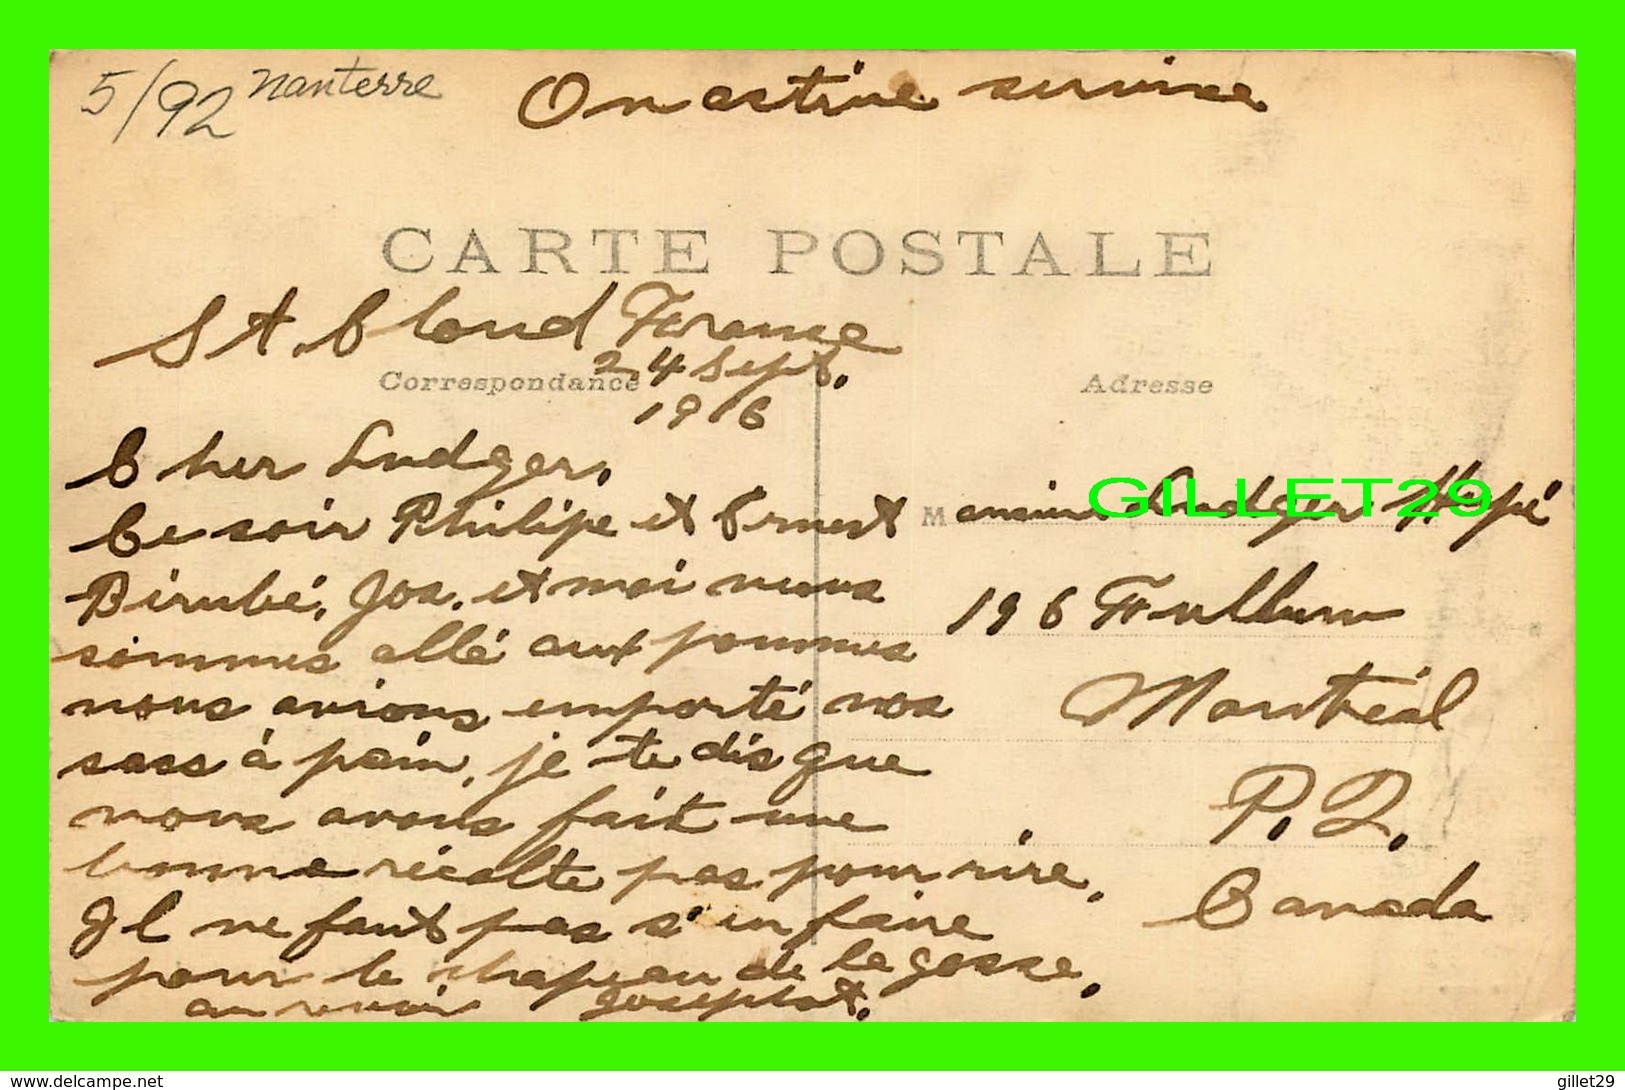 5/92 Nanterre
On active service
CARTE POSTALE
St. Cloud France
24 Sept.
1916
Correspondance
Cher Ludger,
Ce soir Philipe et Ernest
Bérubé, Jos. et moi nous
sommes allé aux pommes
nous avions emporté nos
sacs à pain, je te dis que
nous avons fait une
bonne récolte pas pour rire.
Il ne faut pas s'en faire
pour le chapeau de la gosse.
au revoir Josephat.
Adresse
M Ludger
196 Fullum
Montréal
P.Q.
Canada
GILLET29
www.delcampe.net
gillet29